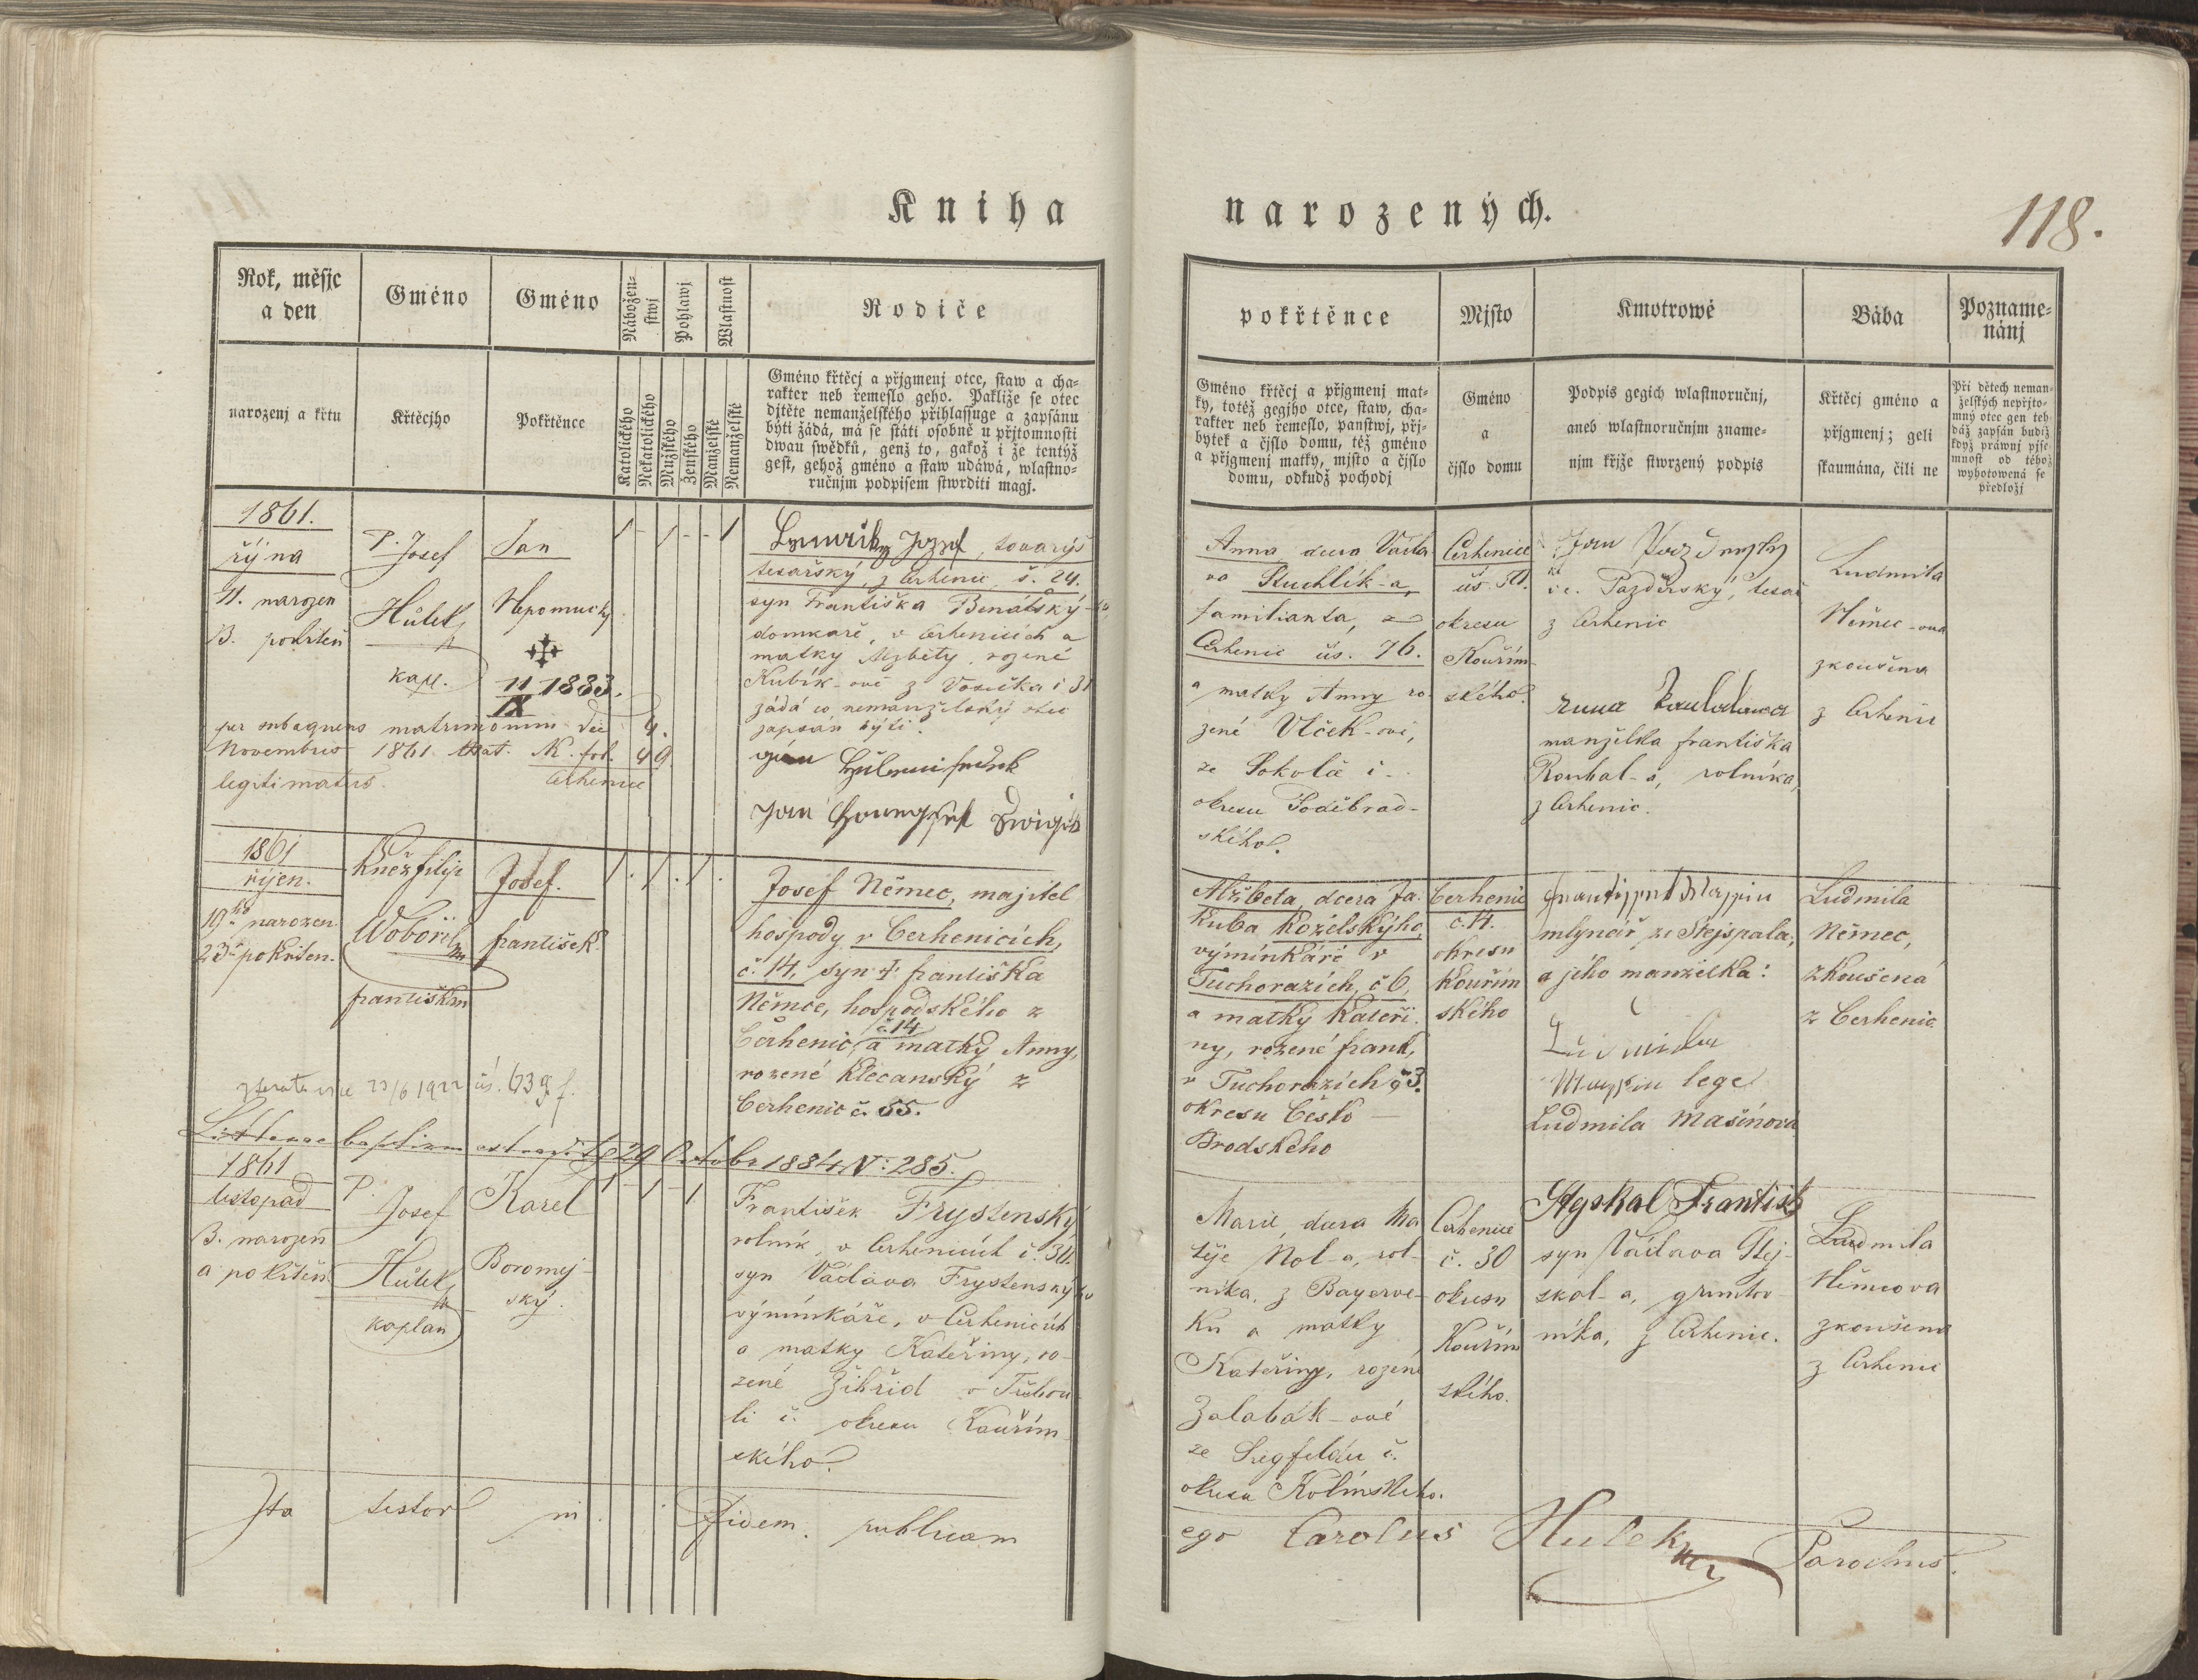 Kniha
narozených.
118.
Rok, měsjc
a den
Gméno
Gméno
Nábožen-
stwj
Pohlawj
Wlastnost
Rodiče
narozenj a křtu
Křtěcjho
Pokřtěnce
Katolického
Nekatolického
Mužského
Ženského
Manželské
Nemanželské
Gméno křtěcj a přjgmenj otce, staw a cha-
rakter neb řemeslo geho. Pakliže se otec
djtěte nemanželského přihlassuge a zapsánu
býti žádá, má se státi osobně u přjtomnosti
dwau swědků, genž to, gakož i že tentýž
gest, gehož gméno a staw udáwá, wlastno-
ručnjm podpisem stwrditi magj.
1861.
řýna
11. narozen
B. pokřtěn
P. Josef
Hůlek
kapl.
Jan
Nepomucký
11 1883.
IX
1 - 1 - - 1
Josef, tovaryš
tesařský, z Cerhenic, č. 24.
syn Františka Benátský-ho,
domkáře, v Cerhenicích a
matky Alžběty, rozené
Kubík-ové z Vosečka č 31
žádá co nemanželský otec
zapsán býti.
per subsequens matrimonium die 4.
Novembris 1861 Mat. N. fol. 49
Cerhenice
legitimatus.
Jan
1861
říjen.
19ho narozen.
23ho pokřtěn.
Kněz Filip
Wobořil
františkán
Josef.
františek
1 . 1 . 1 .
Josef Němec, majitel
hospody v Cerhenicích,
č. 14, syn † františka
Němce, hospodského z
č. 14
Cerhenic, a matky Anny,
rozené Klecanský z
Cerhenic č. 55.
23/6 1922
Litterae baptism extrad. 29 Octobr 1884 N: 285.
1861
listopad
3. narozen
a pokřtěn
P.
Josef
Hůlek
kaplan
Karel
Boromej-
ský.
1 - 1 - 1
František Frystenský
rolník, v Cerhenicích č. 30.
syn Václava Frystenský-ho
výminkáře, v Cerhenicích
a matky Kateřiny, ro-
zené Žibřid v Třebou-
li č. okresu Kouřím-
ského.
Ita testor in fidem publicam
pokřtěnce
Mjsto
Kmotrowé
Bába
Pozname-
nánj
Gméno křtěcj a přjgmenj mat-
ky, totéž gegjho otce, staw, cha-
rakter neb řemeslo, panstwj, přj-
bytek a čjslo domu, též gméno
a přjgmenj matky, mjsto a čjslo
domu, odkudž pochodj
Gméno
a
čjslo domu
Podpis gegich wlastnoručnj,
aneb wlastnoručnjm zname-
njm křjže stwrzený podpis
Křtěcj gméno a
přjgmenj; geli
skaumána, čili ne
Při dětech neman-
želských nepřjto-
mný otec gen teh-
dáž zapsán budiž
když práwnj pjse-
mnost od téhož
wyhotowená se
předložj
Anna, dcera Václa-
va Stuchlík-a,
familianta, z
Cerhenic čís. 76.
a matky Anny ro-
zené Vlček-ové,
ze Sokolče č. -
okresu Poděbrad-
ského.
Cerhenice
čís.
okresu
Kouřím-
ského.
Jan
i.e. Pazderský, tesař
z Cerhenic
manželka františka
Roubal-a, rolníka,
z Cerhenic.
Ludmila
Němec-ová
zkoušena
z Cerhenic
Alžběta, dcera Ja-
kuba Kozelskýho,
výminkáře v
Tuchorazích, č 6,
a matky Kateři-
ny, rozené frank,
v Tuchorazích č 3.
okresu Česko-
Brodského
Cerhenice
č. 14.
okresu
Kouřím
ského
mlynář ze Stejspala,
a jeho manželka:
lege
Ludmila Mašínova
Ludmila
Němec,
zkoušená
z Cerhenic.
Marie, dcera Ma
těje Nol-a, rol-
níka, z Bayerve-
ku a matky
Kateřiny, rozené
Zalabák-ové
ze Siegfeldu č.
okresu Kolínského.
Cerhenice
č. 30
okresu
Kouřím
ského.
Styskal František
syn Václava Stej-
skal-a, gruntov-
níka, z Cerhenic.
Ludmila
Němcova
zkoušena
z Cerhenic
ego Carolus Hulek Parochus.